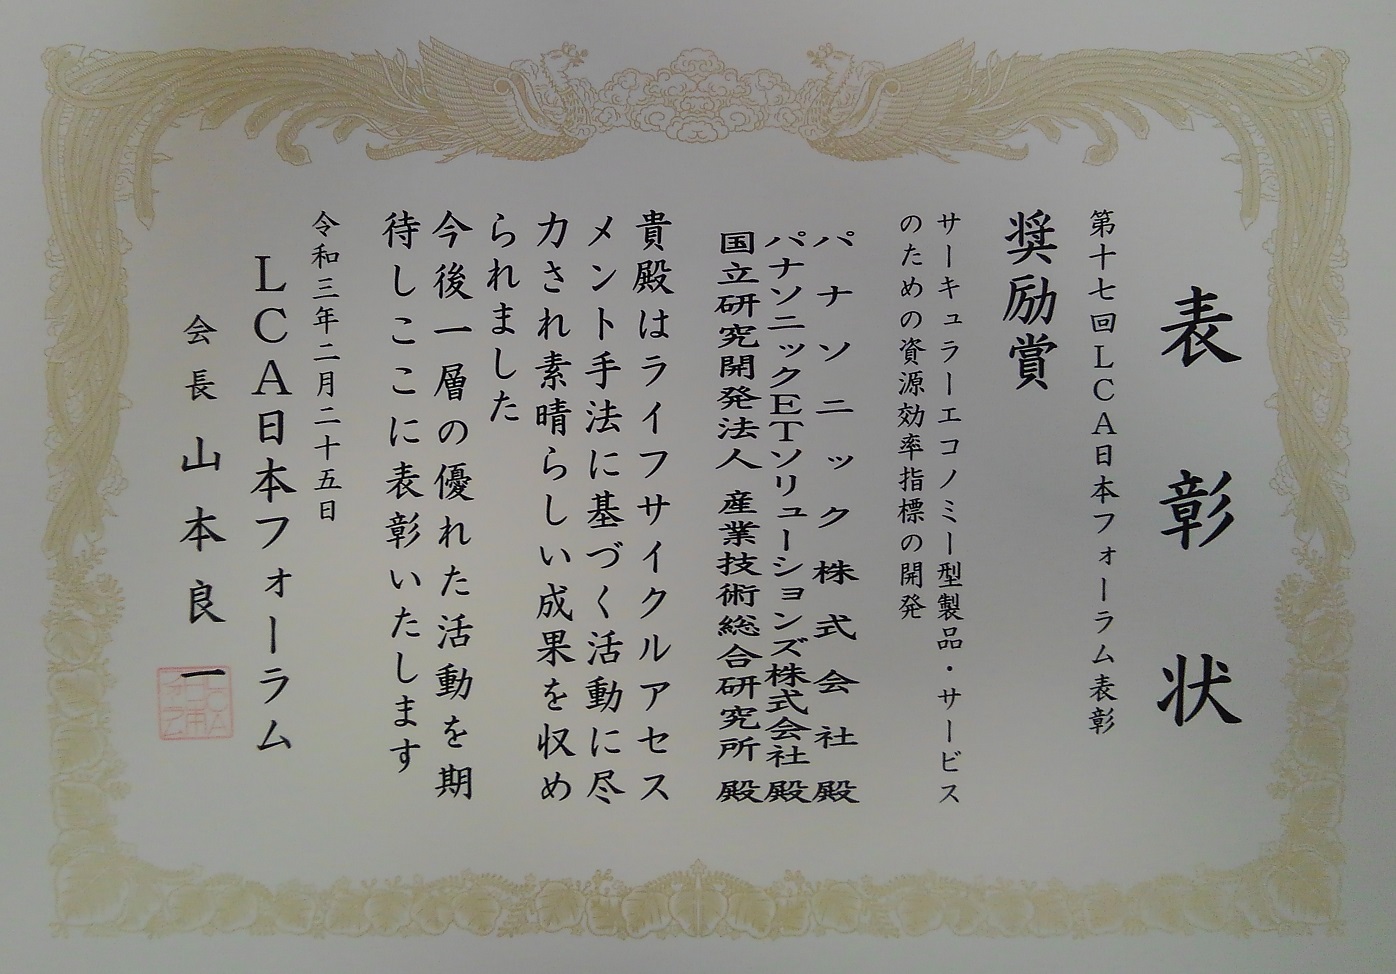 表彰状
第十七回ＬＣＡ日本フォーラム表彰
奨励賞
サーキュラーエコノミー型製品・サービス
のための資源効率指標の開発
パナソニック株式会社 殿
パナソニックＥＴソリューションズ株式会社 殿
国立研究開発法人 産業技術総合研究所 殿
貴殿はライフサイクルアセス
メント手法に基づく活動に尽
力され素晴らしい成果を収め
られました
今後一層の優れた活動を期
待しここに表彰いたします
令和三年二月二十五日
ＬＣＡ日本フォーラム
会長 山本良一